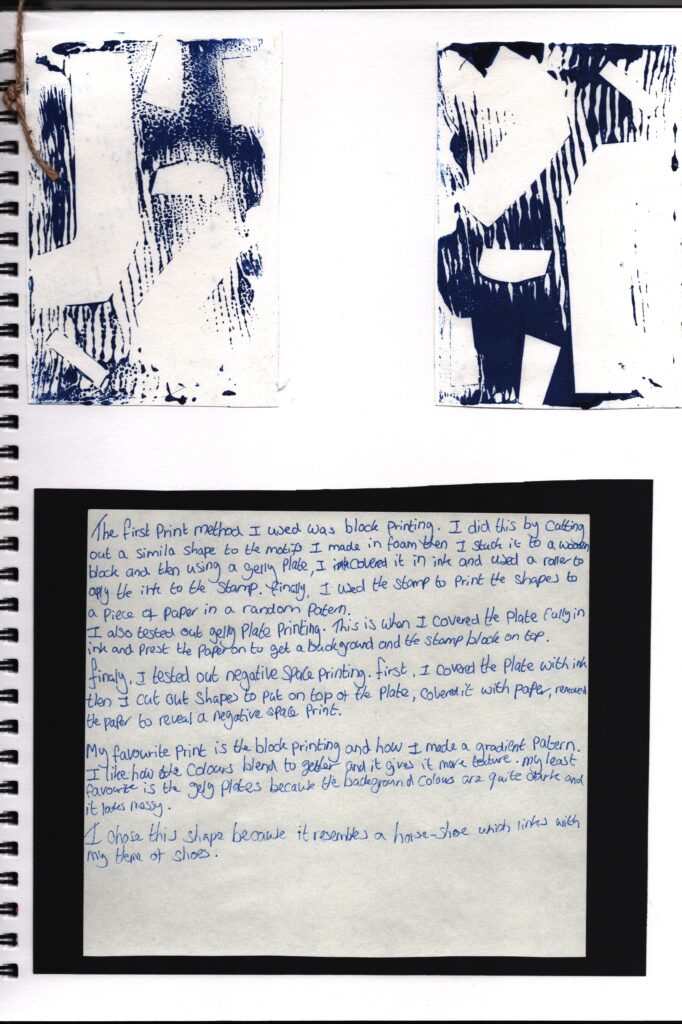 The first Print method I used was block Printing. I did this by Cutting
out a simila shape to the motif I made in foam then I stuck it to a wooden
block and then using a gelly Plate, I covered it in ink and used a roller to
aply the ink to the stamp. finally, I used the stamp to Print the shapes to
a piece of paper in a random Patern.
I also tested out gelly Plate Printing. This is when I covered the Plate fully in
ink and Prest the Paper on to get a background and the stamp block on top.
finaly, I tested out negative Space Printing. first, I covered the Plate with ink
then I cut out Shapes to Put on top of the Plate, Covered it with paper, removed
the paper to reveal a negative space Print.
My favourite Print is the block printing and how I made a gradient Patern.
I like how the Colours blend to gether and it gives it more texture. my least
favourite is the gelly Plates because the background Colours are quite darke and
it lookes messy.
I chose this shape because it resembles a horse-shoe which links with
my theme of shoes.